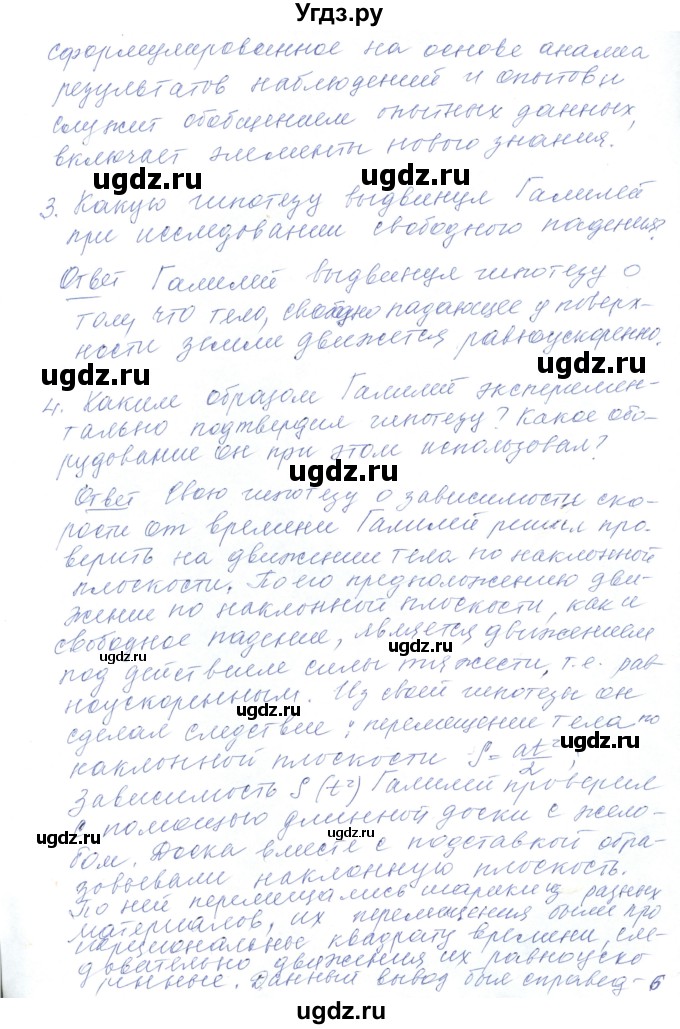 Угдз.ру
сформулированное на основе анализа
результатов наблюдений и опытов и
служит обобщением опытных данных,
включает элементы нового знания.
ugdz.ru ugdz.ru
3. Какую гипотезу выдвинул Галилей
при исследовании свободного падения?
Ответ Галилей выдвинул гипотезу о
том, что тело, свободно падающее у поверх-
ности земли движется равноускоренно.
ugdz.ru ugdz.ru
4. Каким образом Галилей эксперемен-
тально подтвердил гипотезу? Какое обо-
рудование он при этом использовал?
ugdz.ru
Ответ Свою гипотезу о зависимости ско-
рости от времени Галилей решил про-
верить на движении тела по наклонной
плоскости. По его предположению дви-
жение по наклонной плоскости, как и
свободное падение, является движением
ugdz.ru
под действием силы тяжести, т.е. рав-
ноускоренным. Из своей гипотезы он
ugdz.ru
сделал следствие: перемещение тела по
наклонной плоскости S = at²/2,
Зависимость S (t²) Галилей проверил
с помощью длинной доски с жело-
ugdz.ru ugdz.ru
бом. Доска вместе с подставкой обра-
зовывали наклонную плоскость.
По ней перемещались шарики из разных
материалов, их перемещения были про
порциональные квадрату времени, сле-
довательно движения их равноуско
ренные. Данный вывод был справед-
ugdz.ru ugdz.ru
6